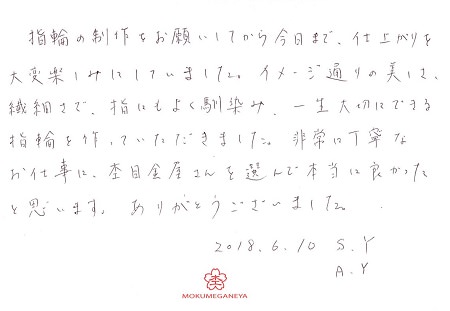 指輪の制作をお願いしてから今日まで、仕上がりを
大変楽しみにしていました。イメージ通りの美しさ、
繊細さで、指にもよく馴染み、一生大切にできる
指輪を作っていただきました。非常に丁寧な
お仕事に、杢目金屋さんを選んで本当に良かった
と思います。ありがとうございました。
2018.6.10 S.Y
A.Y
MOKUMEGANEYA